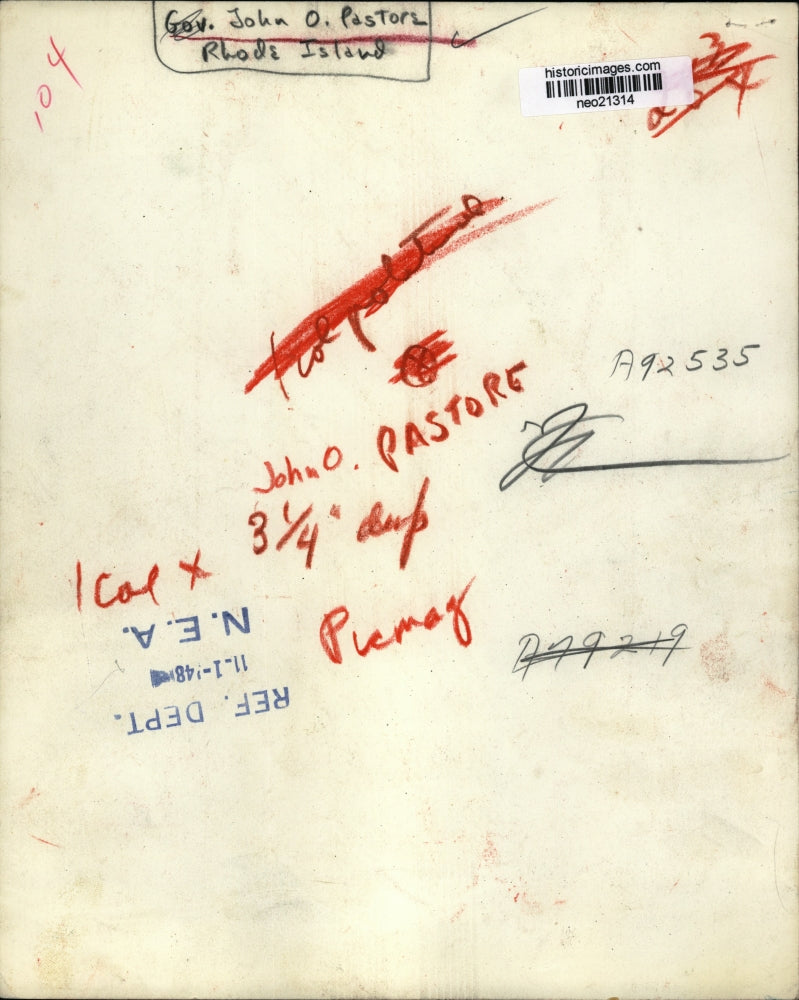 Gov. John O. Pastore
Rhode Island
104
historicimages.com
neo21314
1 col
A92535
John O. PASTORE
1 Col x 3 1/4" deep
Picmag
N.E.A.
11-1-'48
REF. DEPT.
A79219